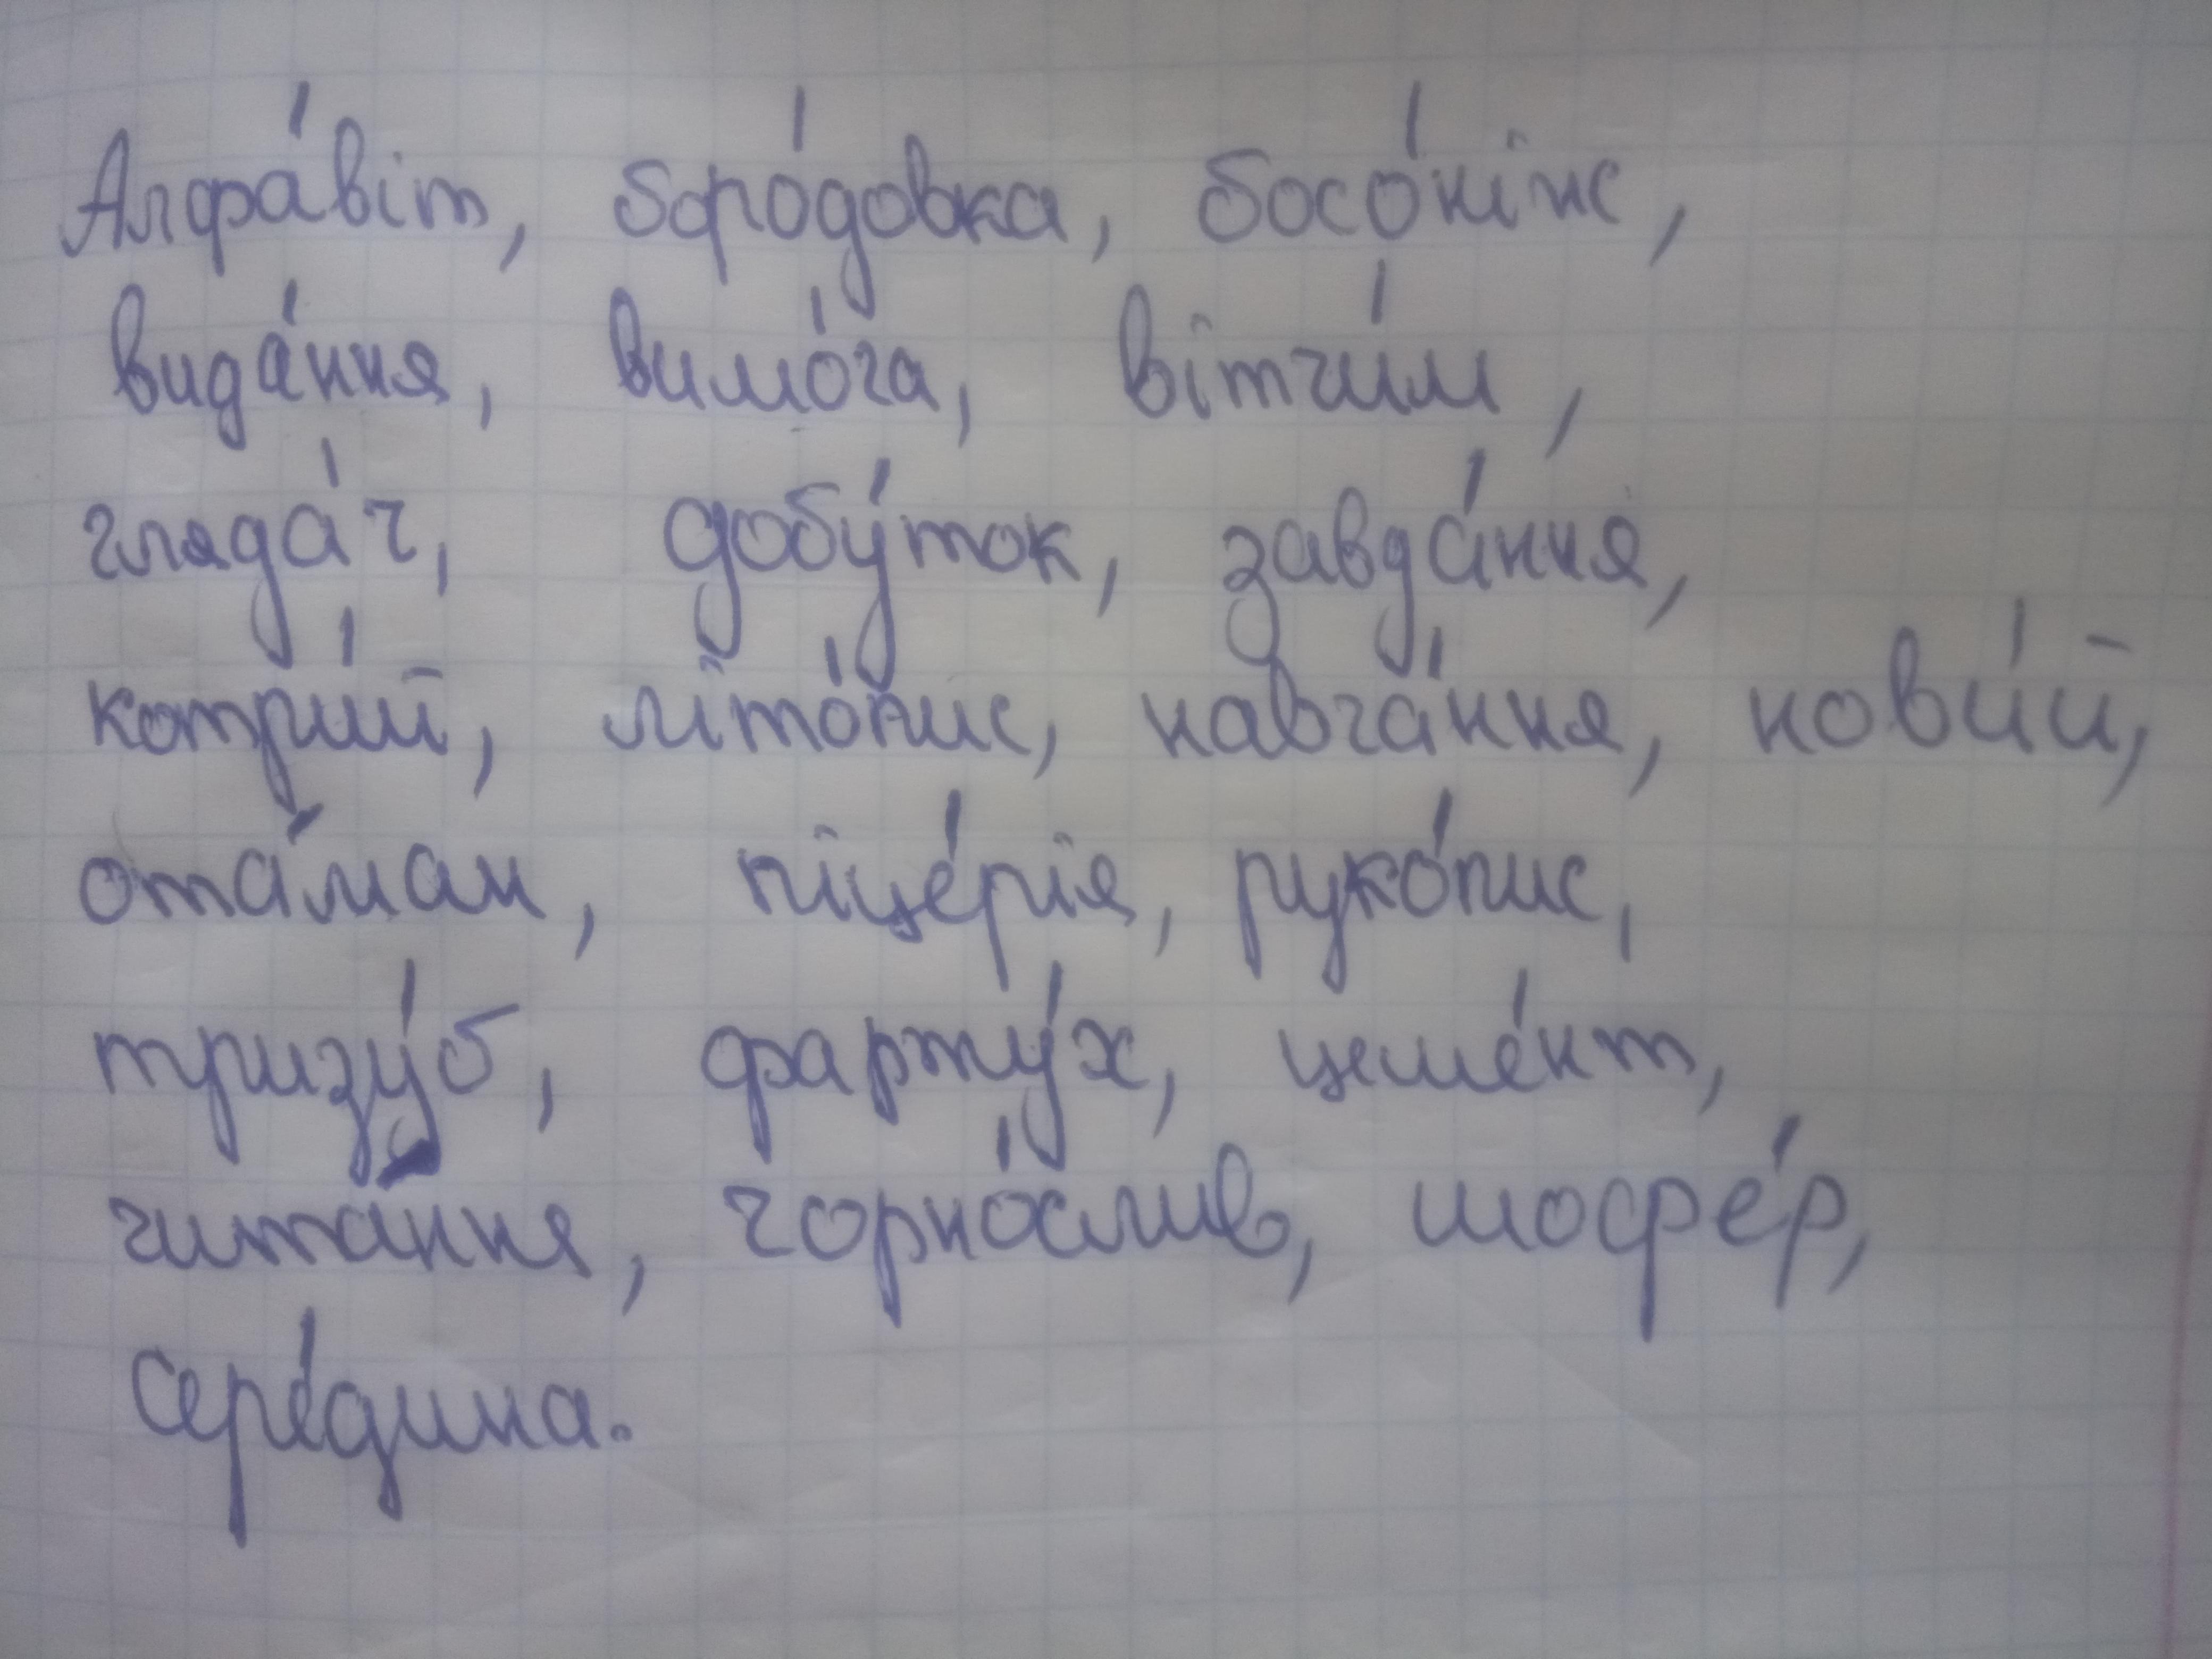 Алфа́віт, боро́довка, босо́ніж,
вида́ння, вимо́га, вітчи́м,
гляда́ч, добу́ток, завда́ння,
котри́й, літо́пис, навча́ння, нови́й,
ота́ман, піце́рія, руко́пис,
тризу́б, фарту́х, цеме́нт,
чита́ння, чорно́слив, шофе́р,
сере́дина.